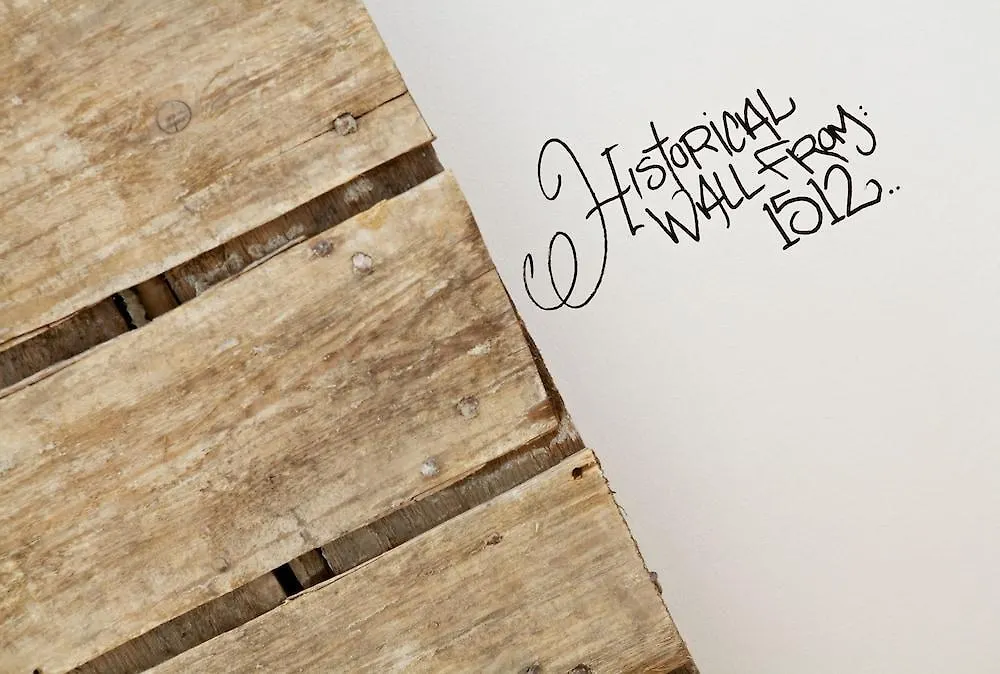 Historical
Wall From:
1512..